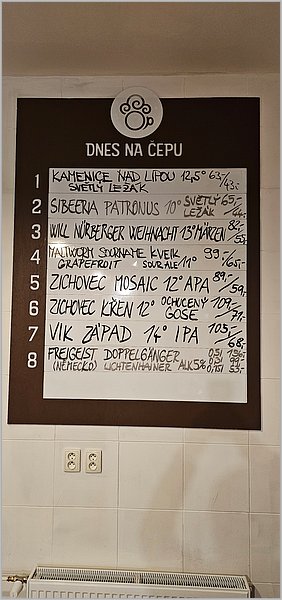 DNES NA ČEPU
1 KAMENICE NAD LIPOU 12,5° 63,-/43,-
SVĚTLÝ LEŽÁK
2 SIBEERIA PATRONUS 10° SVĚTLÝ LEŽÁK 65,-/44,-
3 WILL NÜRBERGER WEIHNACHT 13° MÄRZEN 82,-/55,-
4 MALTWORM SOURNAME KVEIK 99,-/65,-
GRAPEFRUIT SOUR ALE 11°
5 ZICHOVEC MOSAIC 12° APA 89,-/59,-
6 ZICHOVEC KŘEN 12° OCHUCENÝ GOSE 109,-/71,-
7 VIK ZÁPAD 14° IPA 103,-/68,-
8 FREIGEIST DOPPELGÄNGER 0,5l
(NĚMECKO) LICHTENHAINER ALK 5% 0,3l
0,15l